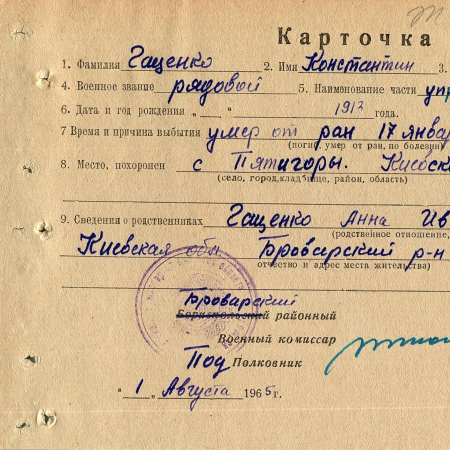 Карточка
1. Фамилия Гащенко 2. Имя Константин 3.
4. Военное звание рядовой 5. Наименование части упр
6. Дата и год рождения „ “ 1912 года.
7 Время и причина выбытия умер от ран 17 январ
(погиб, умер от ран, по болезни
8. Место, похоронен с Пятигоры. Киевск
(село, город, кладбище, район, область)
9. Сведения о родственниках Гащенко Анна Ив
(родственное отношение,
Киевская обл. Броварский р-н
отчество и адрес места жительства)
Броварский
Бориспольский районный
Военный комиссар
Под Полковник
„ 1 “ Августа 1965 г.